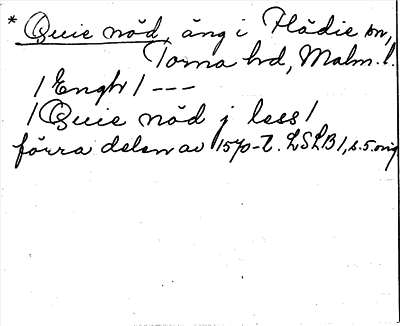 * Quie nöd, äng i Flädie sn,
Torna hd, Malm. l.
/Engh/ ---
/Quie nöd j less/
förra delen av 1570-t. LSLB1, s. 5. orig